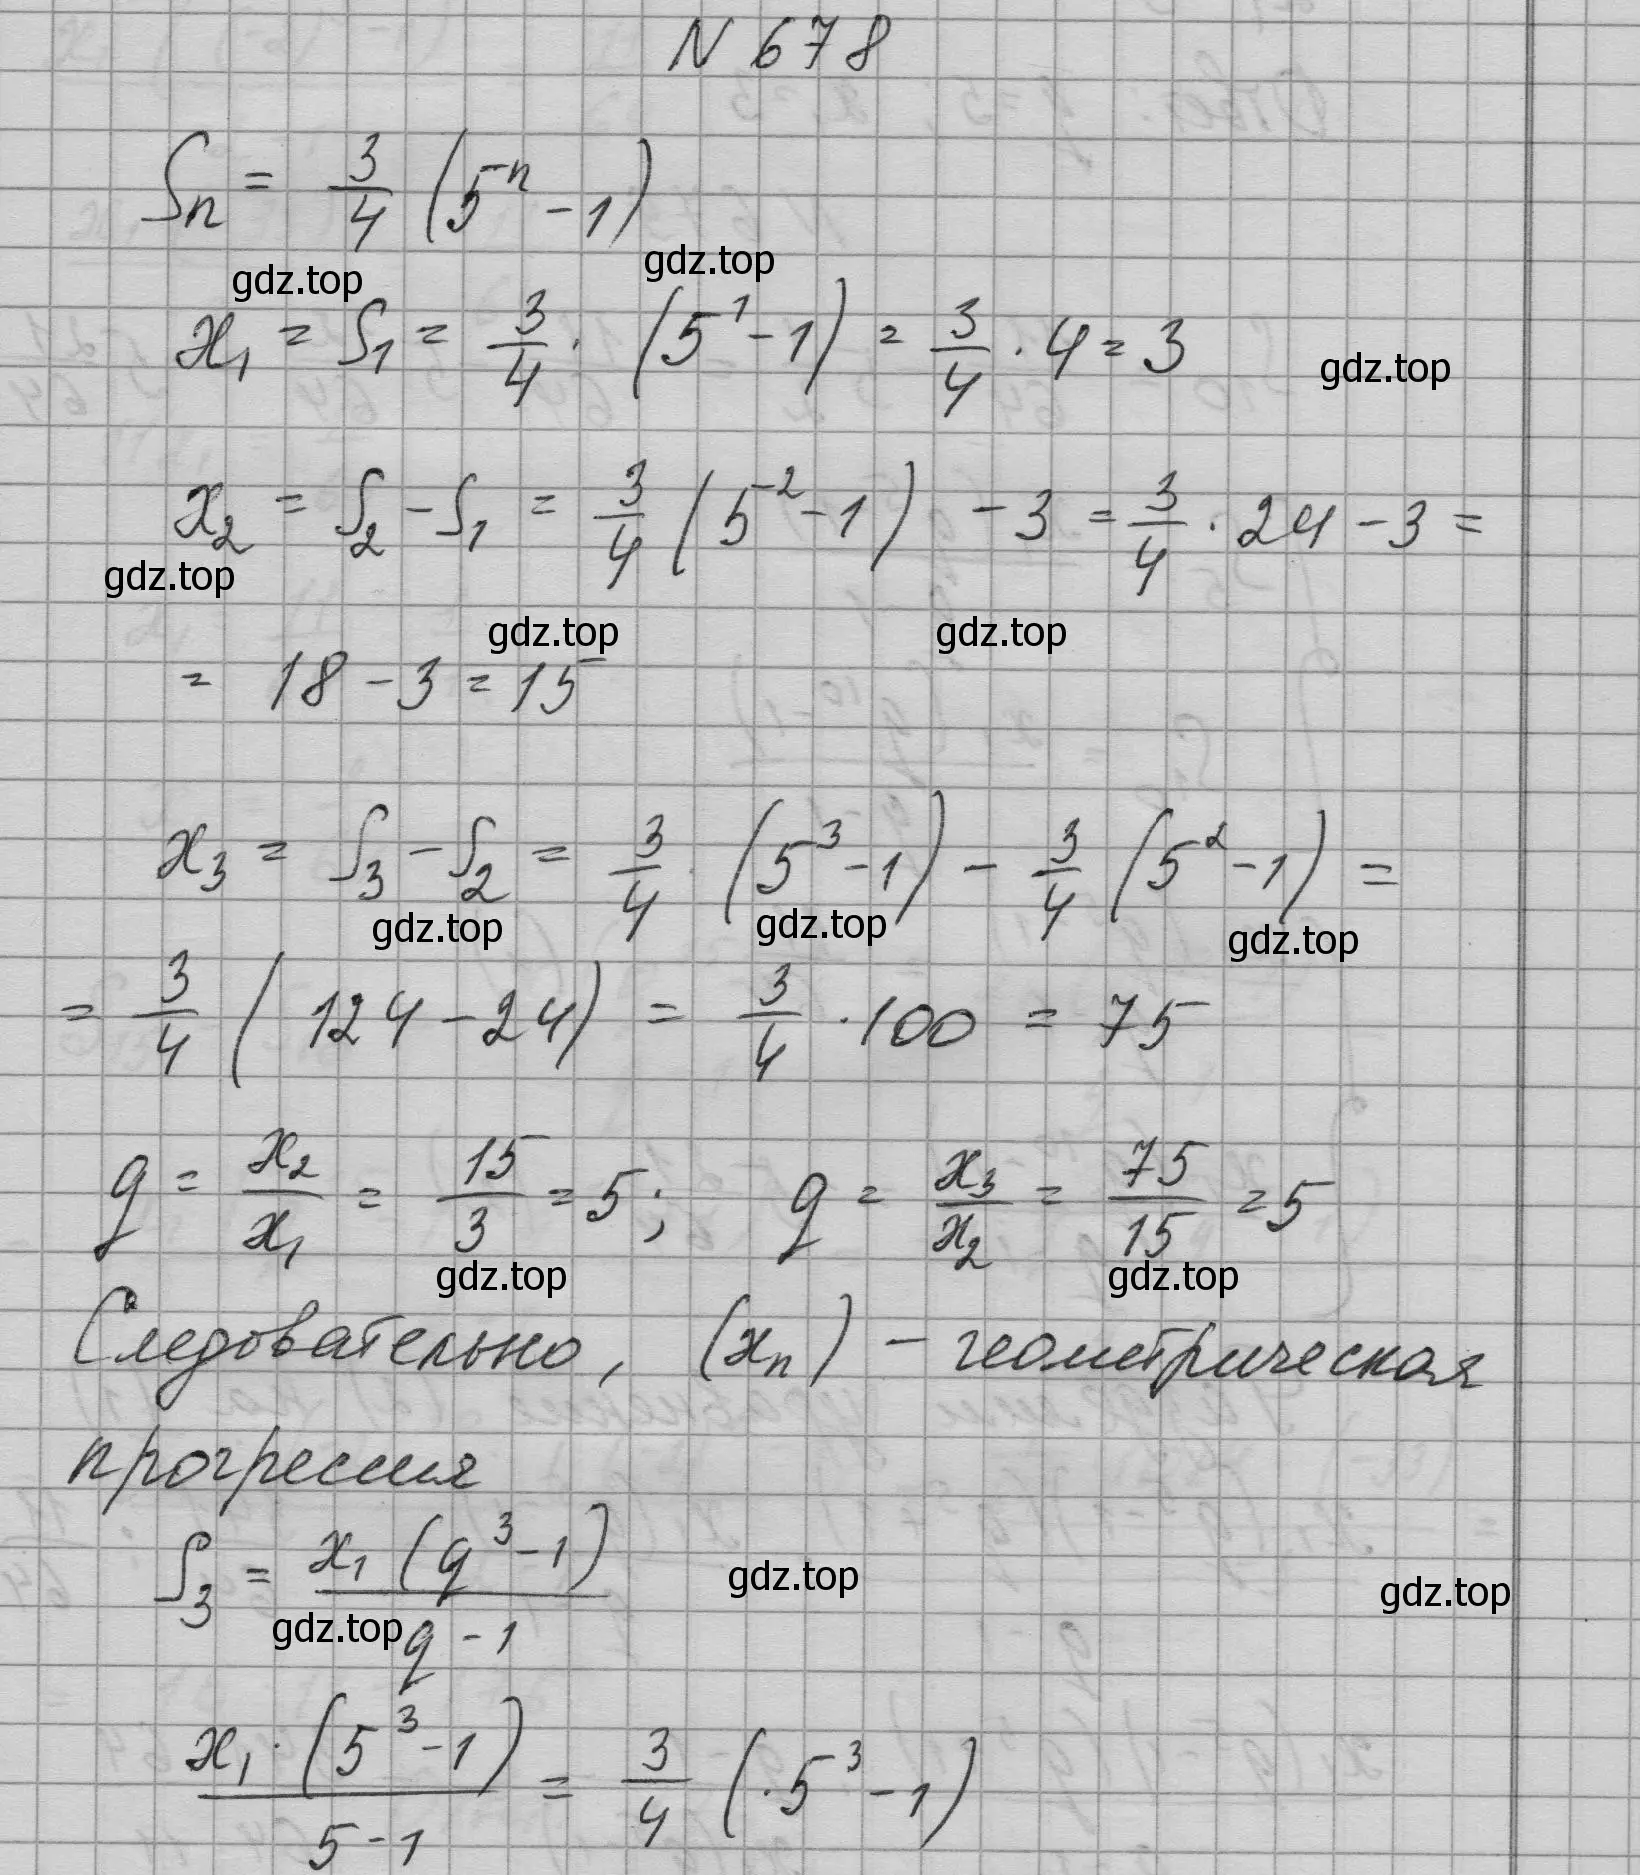 N 678
Sn = 3/4 (5^n - 1)
gdz.top gdz.top
x₁ = S₁ = 3/4 · (5^1 - 1) = 3/4 · 4 = 3
gdz.top
x₂ = S₂ - S₁ = 3/4 (5^2 - 1) - 3 = 3/4 · 24 - 3 =
gdz.top gdz.top gdz.top
= 18 - 3 = 15
x₃ = S₃ - S₂ = 3/4 · (5^3 - 1) - 3/4 (5^2 - 1) =
gdz.top gdz.top gdz.top
= 3/4 (124 - 24) = 3/4 · 100 = 75
q = x₂/x₁ = 15/3 = 5; q = x₃/x₂ = 75/15 = 5
gdz.top gdz.top
Следовательно, (xn) - геометрическая
прогрессия
S₃ = x₁ (q^3 - 1) / q - 1
gdz.top gdz.top gdz.top
x₁ · (5^3 - 1) / 5 - 1 = 3/4 (· 5^3 - 1)